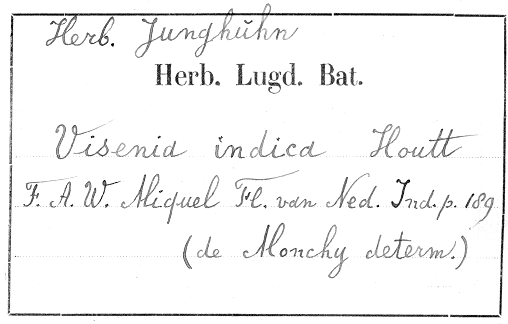 Herb. Junghühn
Herb. Lugd. Bat.
Visenia indica Houtt
F. A. W. Miquel Fl. van Ned. Ind. p. 189
(de Monchy determ.)